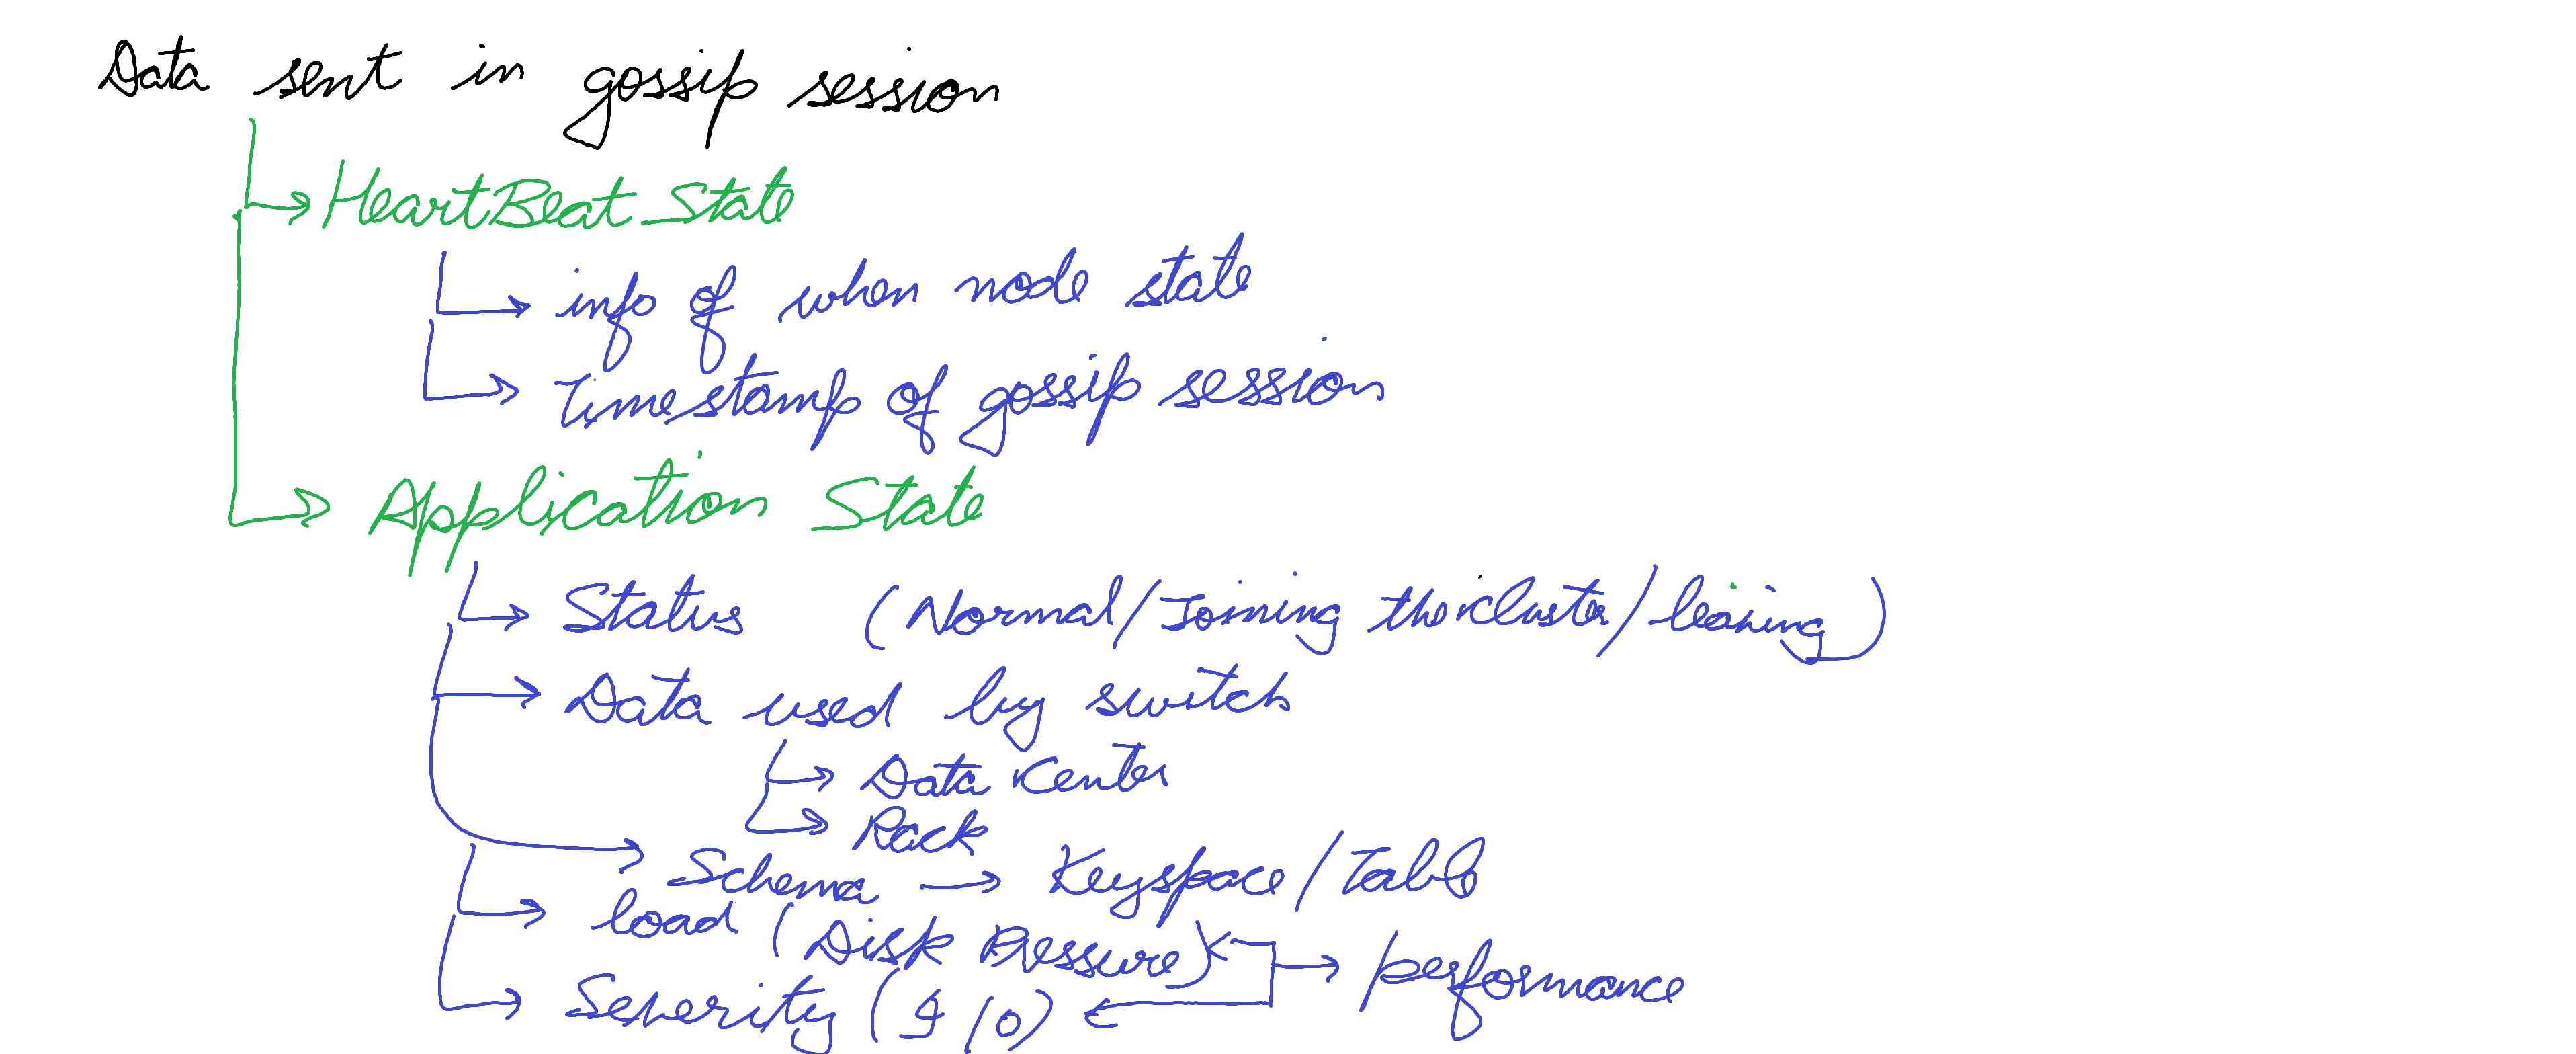 Data sent in gossip session
HeartBeat State
info of when node state
Timestamp of gossip session
Application State
Status (Normal/Joining the cluster/leaving)
Data used by switch
Data Center
Rack
Schema → Keyspace/Table
load (Disk Pressure)
Severity (I/O)
performance